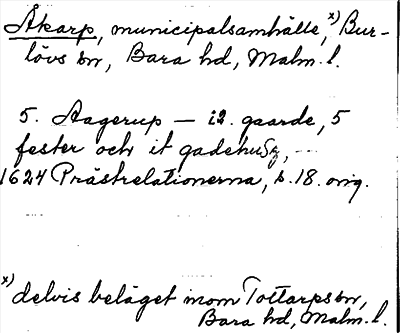 Åkarp, municipalsamhälle, x) Bur-
lövs sn, Bara hd, Malm. l.
5. Aagerup — i2. gaarde, 5
fester och it gadehusz, --
1624 Prästrelationerna, s. 18. orig.
x) delvis beläget inom Tottarps sn,
Bara hd, Malm. l.